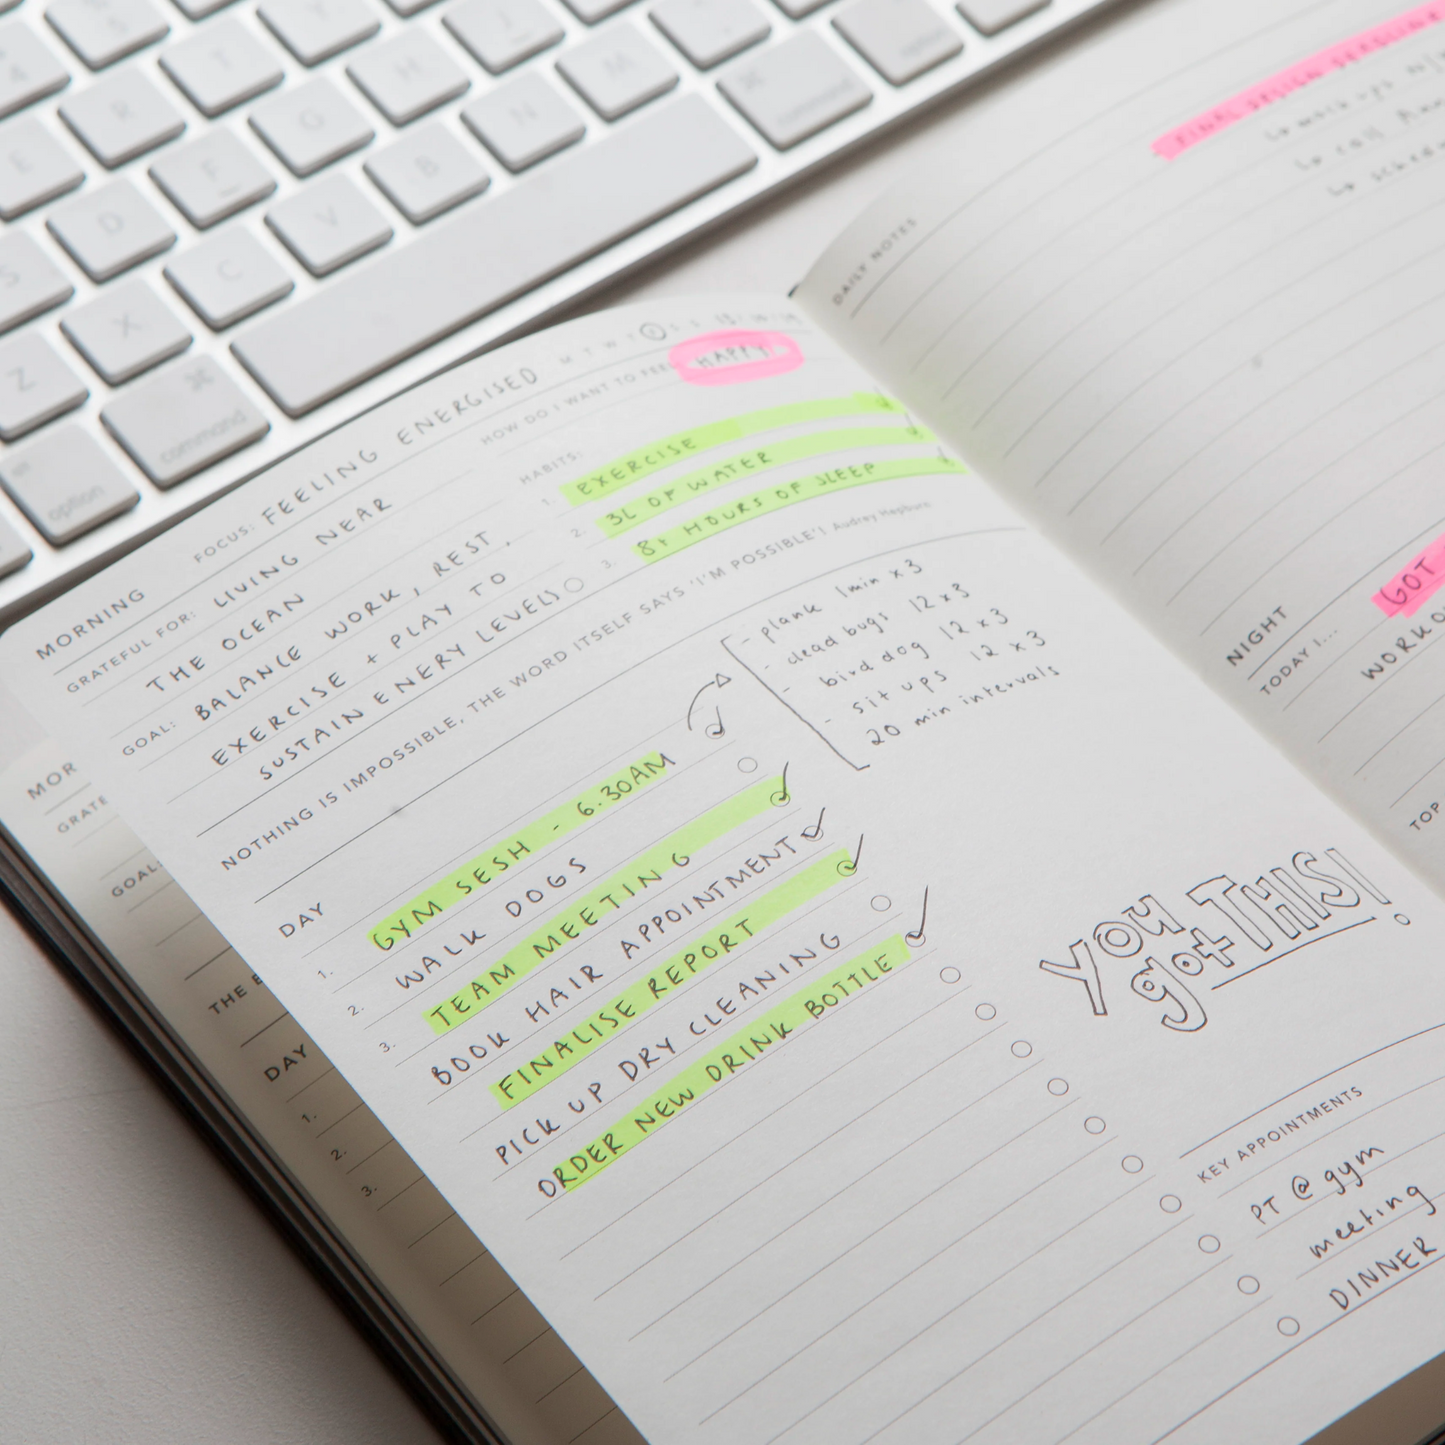 T
Y
R
G
H
J
M
command
option
E
F
B
N
S
D
V
X
C
Z
command
option
MORNING
FOCUS: FEELING ENERGISED
M T W T F S S
GRATEFUL FOR: LIVING NEAR
THE OCEAN
GOAL: BALANCE WORK, REST,
EXERCISE + PLAY TO
SUSTAIN ENERY LEVELS
HOW DO I WANT TO FEEL HAPPY
HABITS:
1. EXERCISE
2. 3L OF WATER
3. 8+ HOURS OF SLEEP
NOTHING IS IMPOSSIBLE, THE WORD ITSELF SAYS 'I'M POSSIBLE'! Audrey Hepburn
DAY
1. GYM SESH - 6.30AM
2. WALK DOGS
3. TEAM MEETING
BOOK HAIR APPOINTMENT
FINALISE REPORT
PICK UP DRY CLEANING
ORDER NEW DRINK BOTTLE
- plank 1min x3
- dead bugs 12x3
- bird dog 12x3
- sit ups 12x3
20 min intervals
You
got THIS!
KEY APPOINTMENTS
PT @ gym
meeting
DINNER
DAILY NOTES
FINAL DESIGN DEADLINE
↳ mock ups
↳ call
↳
NIGHT
TODAY I...
GOT
TOP
MOR
GRATE
GOAL
THE
DAY
1.
2.
3.